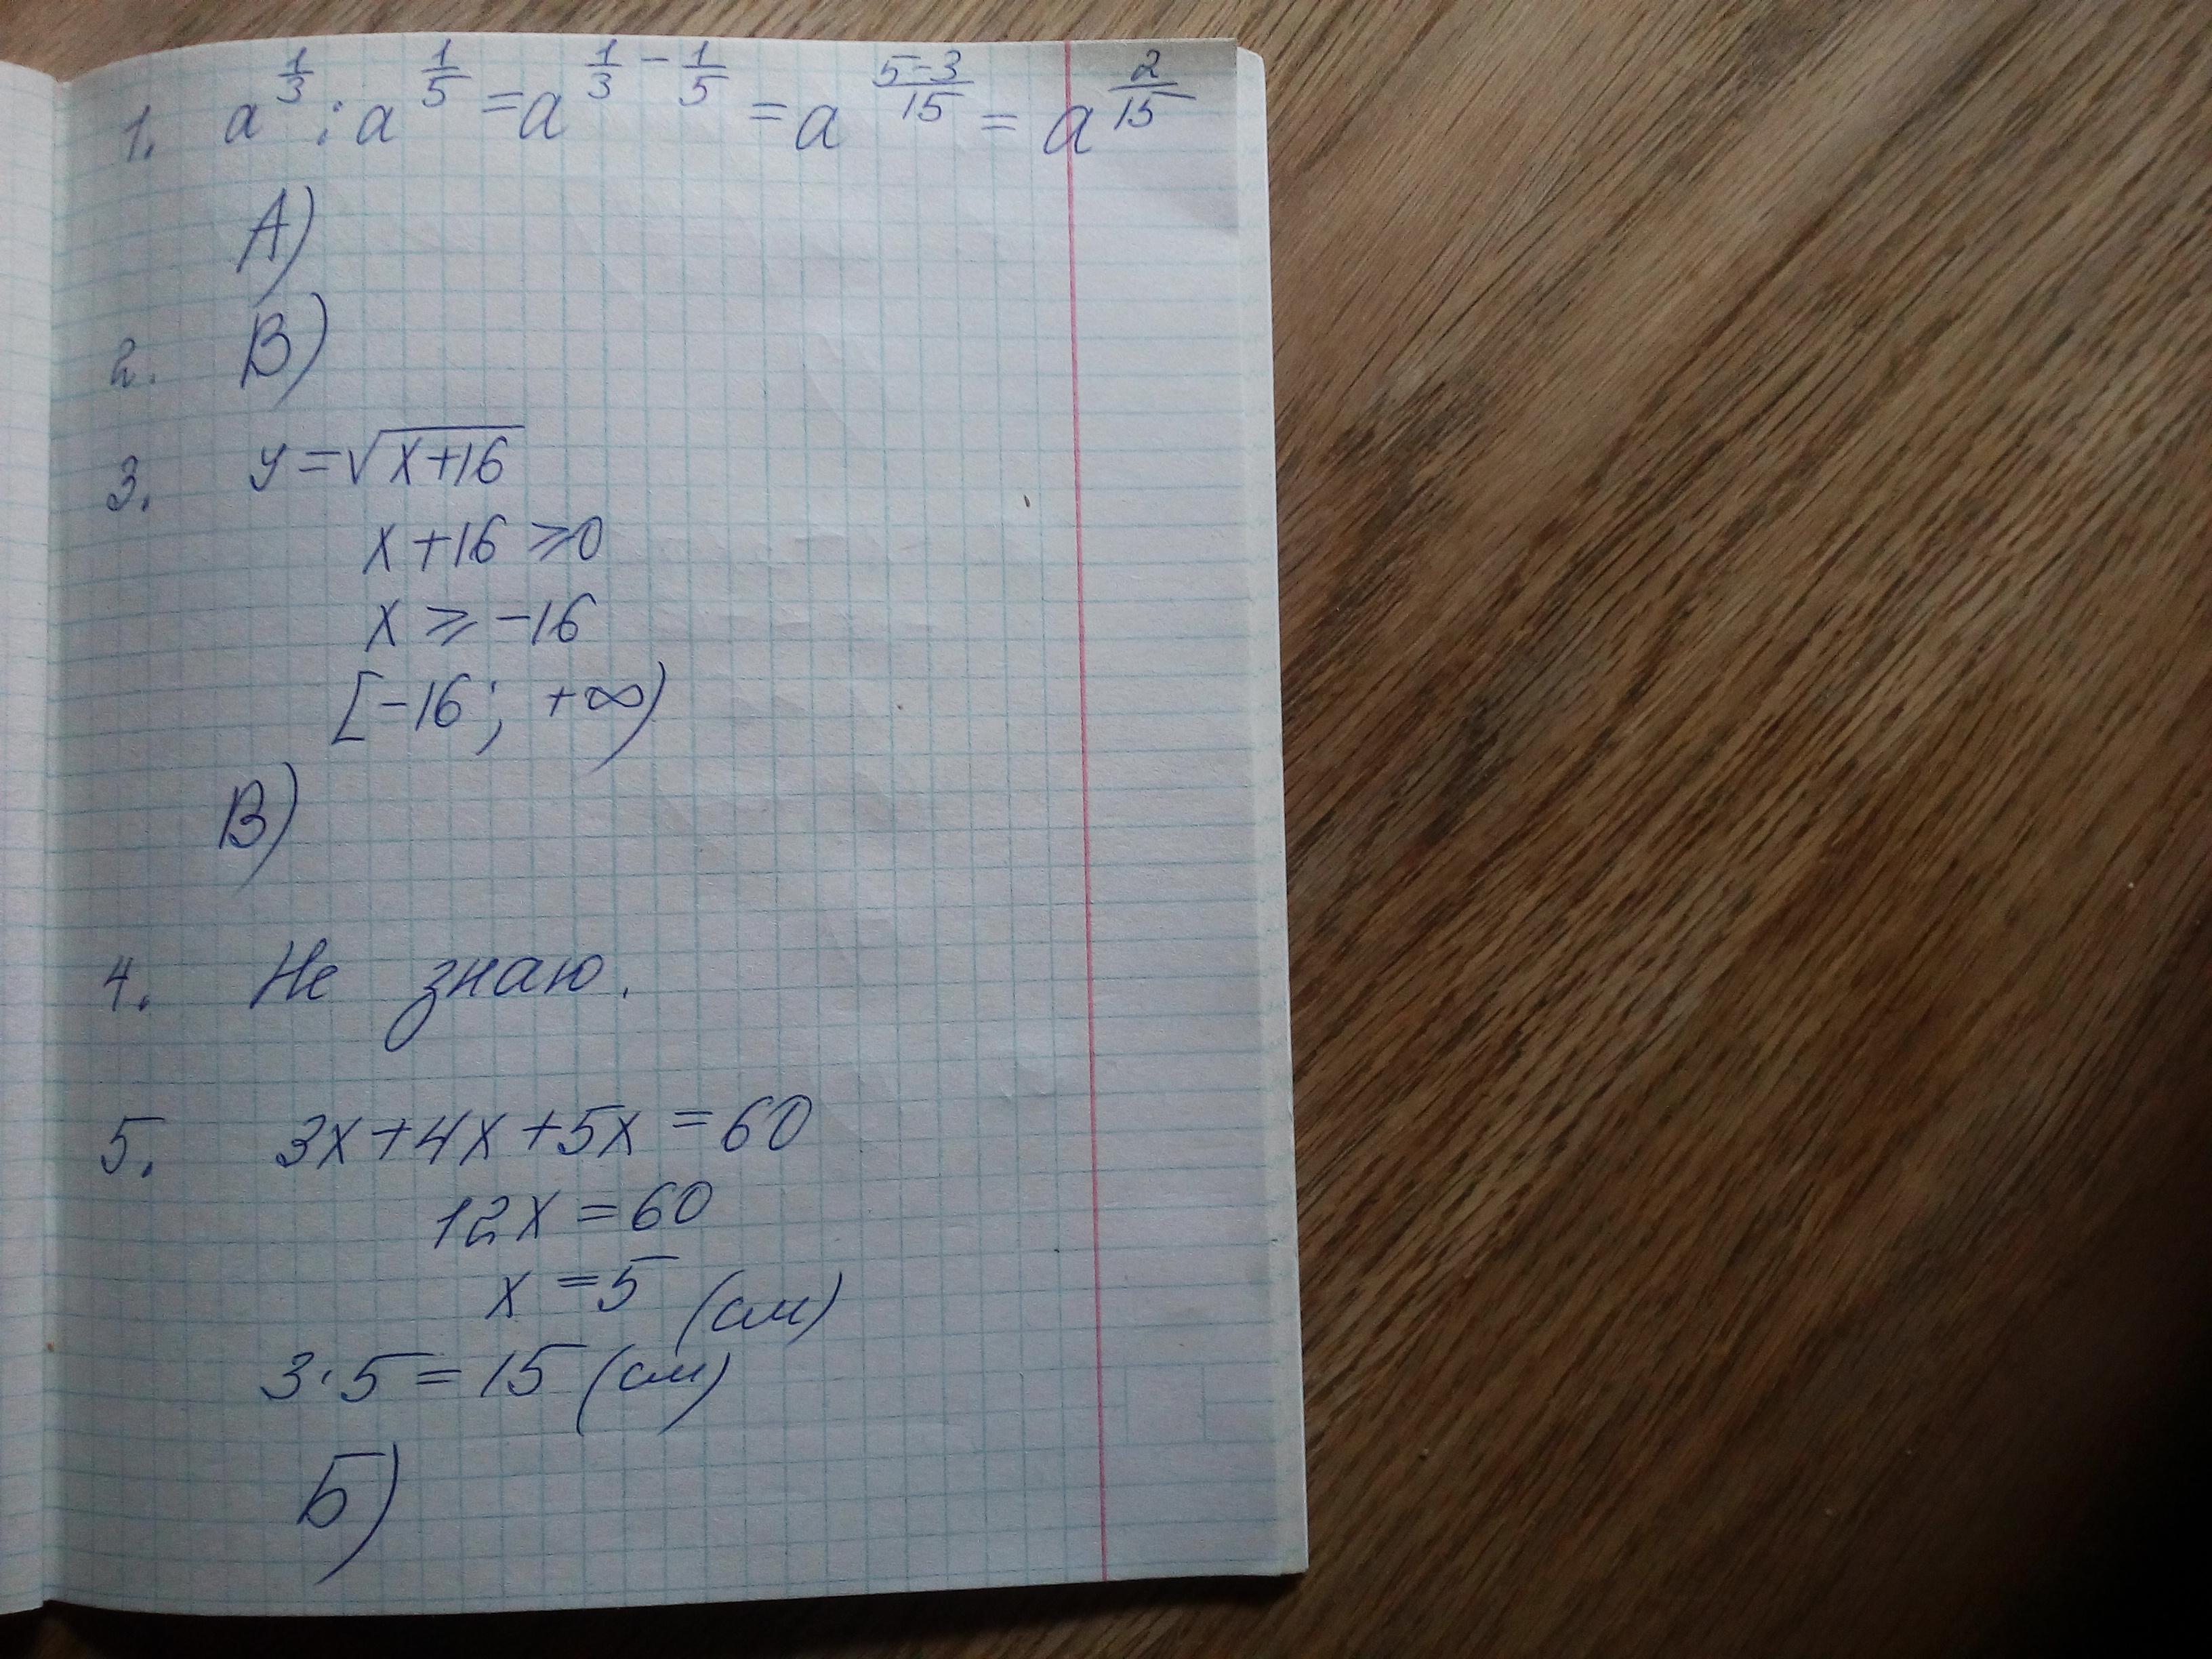 1. a^{1/3} : a^{1/5} = a^{1/3 - 1/5} = a^{5-3/15} = a^{2/15}
А)
2. В)
3. y = √(x+16)
x + 16 ⩾ 0
x ⩾ -16
[-16; +∞)
В)
4. Не знаю.
5. 3x + 4x + 5x = 60
12x = 60
x = 5 (см)
3 · 5 = 15 (см)
Б)